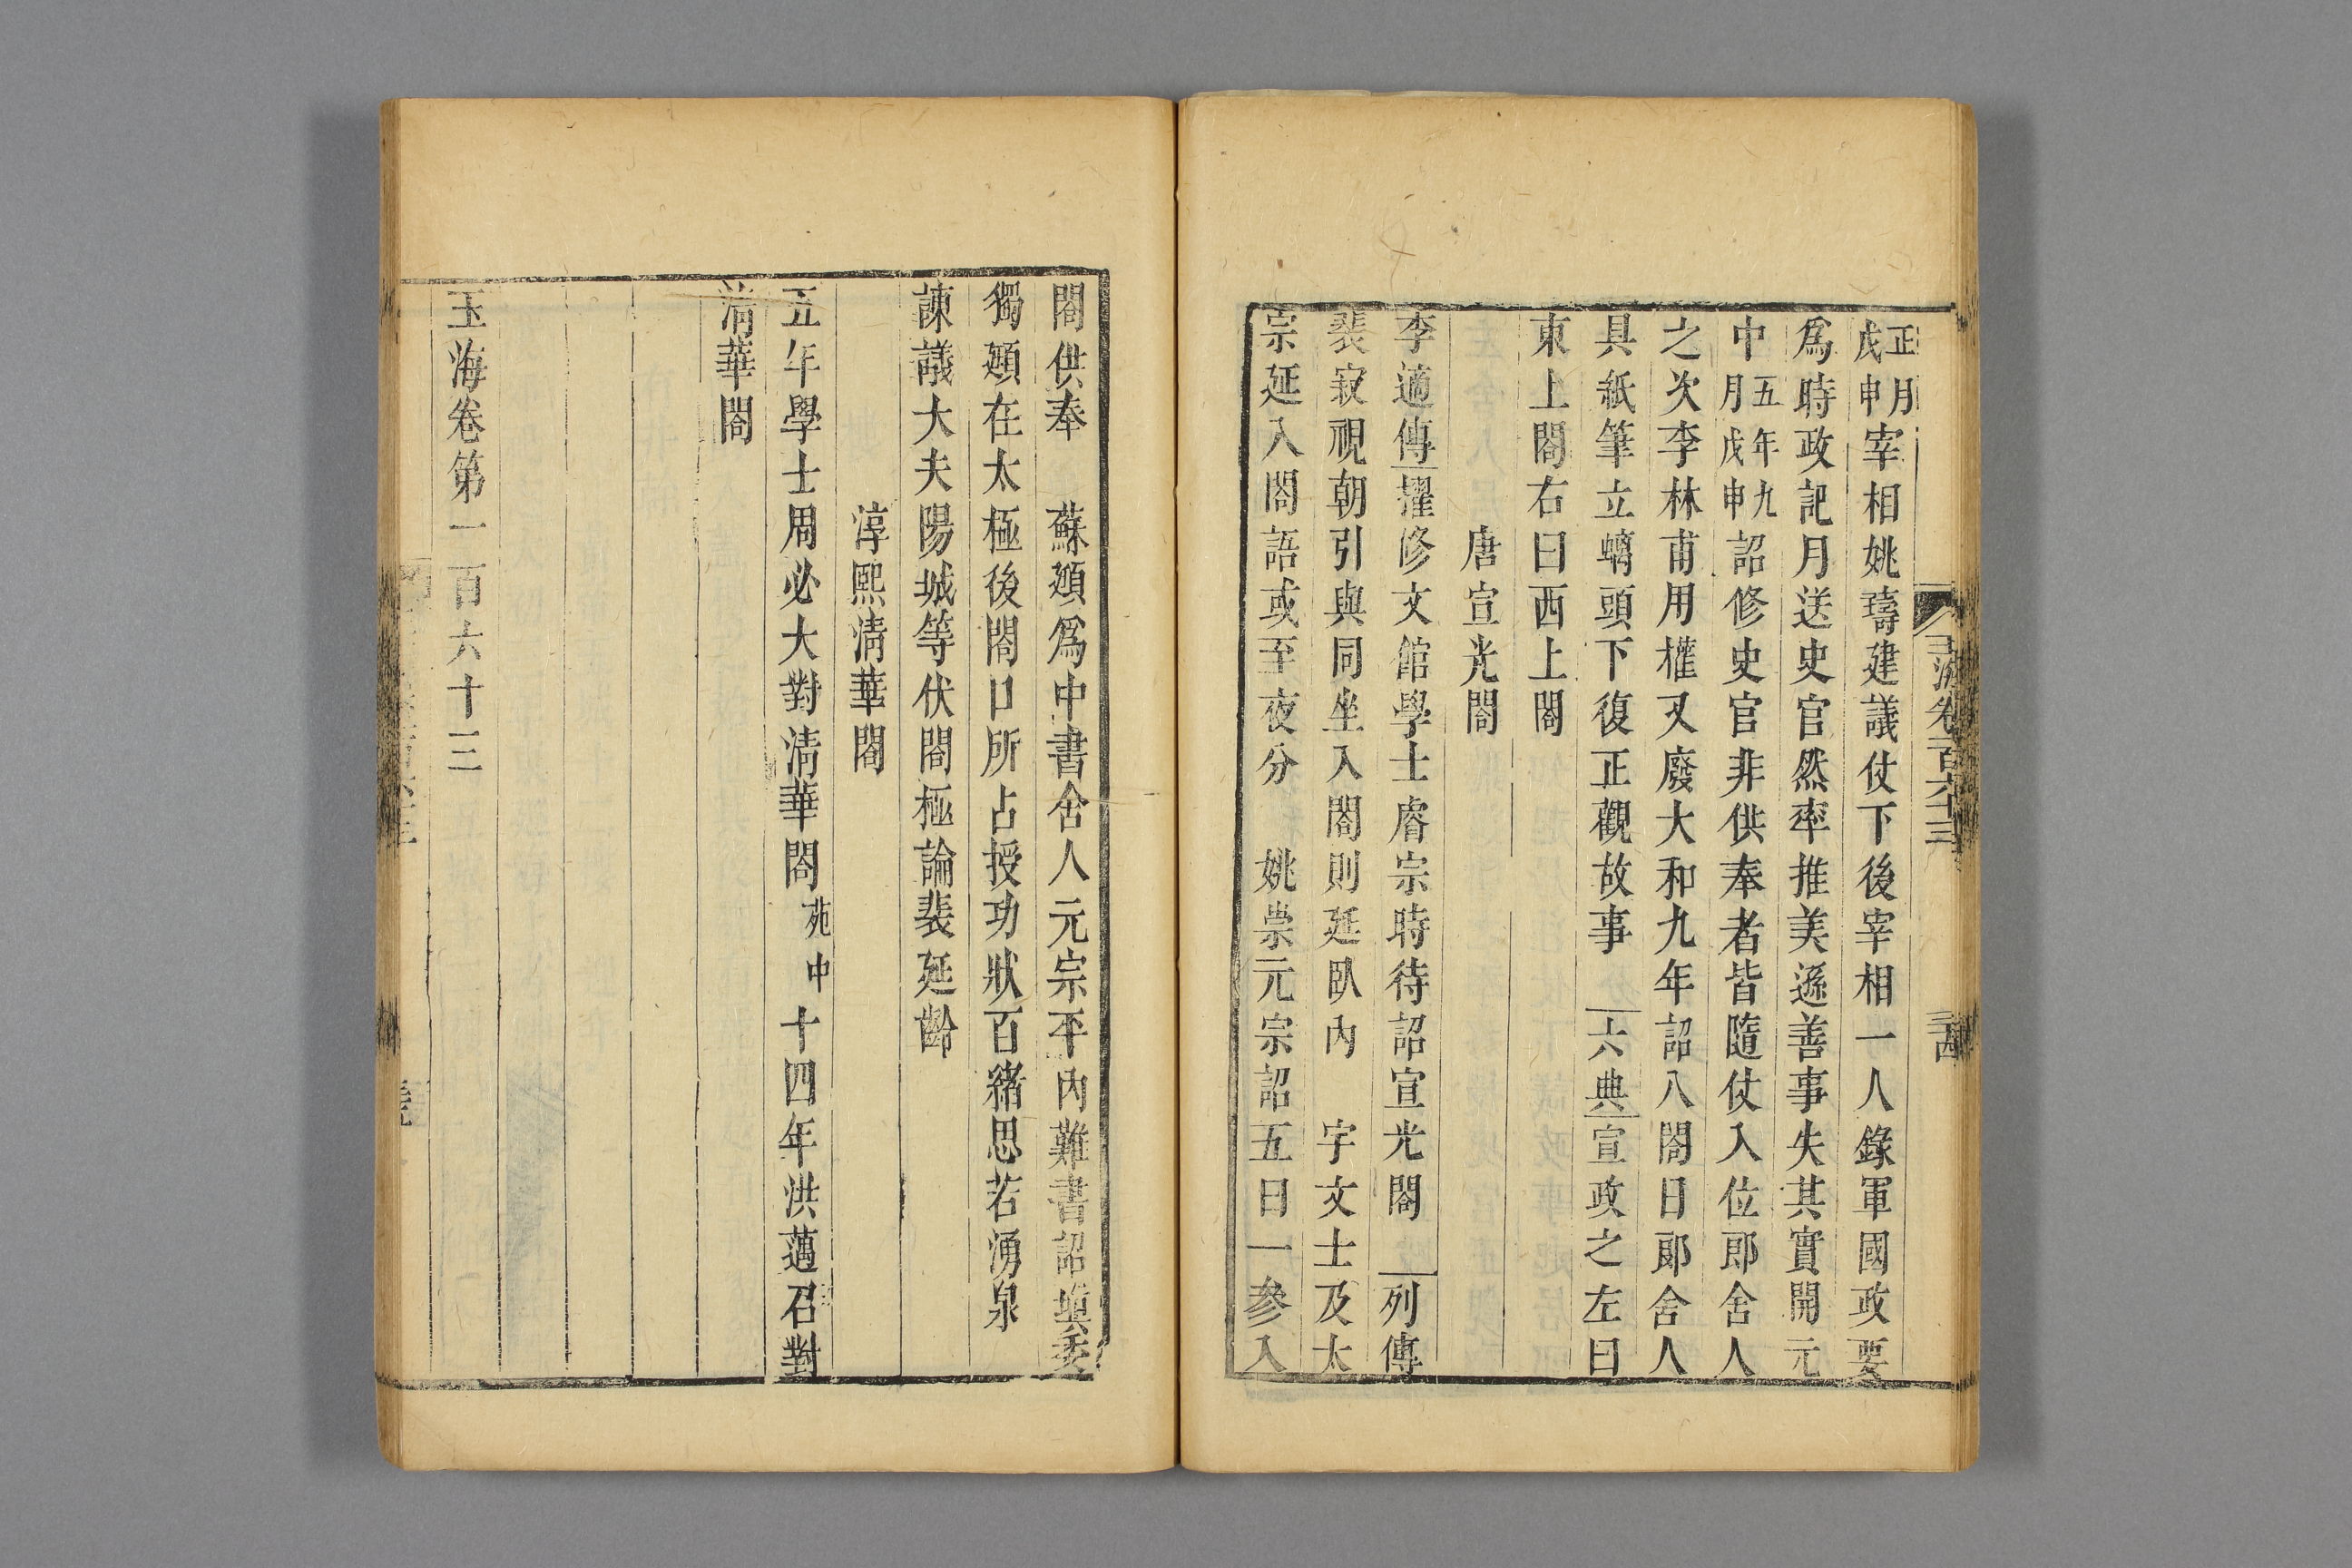 正月戊申宰相姚璹建議仗下後宰相一人錄軍國政要
爲時政記月送史官然率推美遜善事失其實開元
中五年九月戊申詔修史官非供奉者皆隨仗入位郎舍人
之次李林甫用權又廢大和九年詔入閤日郎舍人
具紙筆立螭頭下復正觀故事 六典宣政之左曰
東上閤右曰西上閤
唐宣光閣
李適傳擢修文館學士睿宗時待詔宣光閣 列傳
裴寂視朝引與同坐入閤則延臥內 宇文士及太
宗延入閤語或至夜分 姚崇元宗詔五日一參入
玉海卷一百六十三
三十四
閤供奉 蘇頲爲中書舍人元宗平內難書詔塡委
獨頲在太極後閤口所占授功狀百緖思若湧泉
諫議大夫陽城等伏閤極論裴延齡
淳熙清華閣
五年學士周必大對清華閣苑中十四年洪邁召對
清華閣
玉海卷第一百六十三